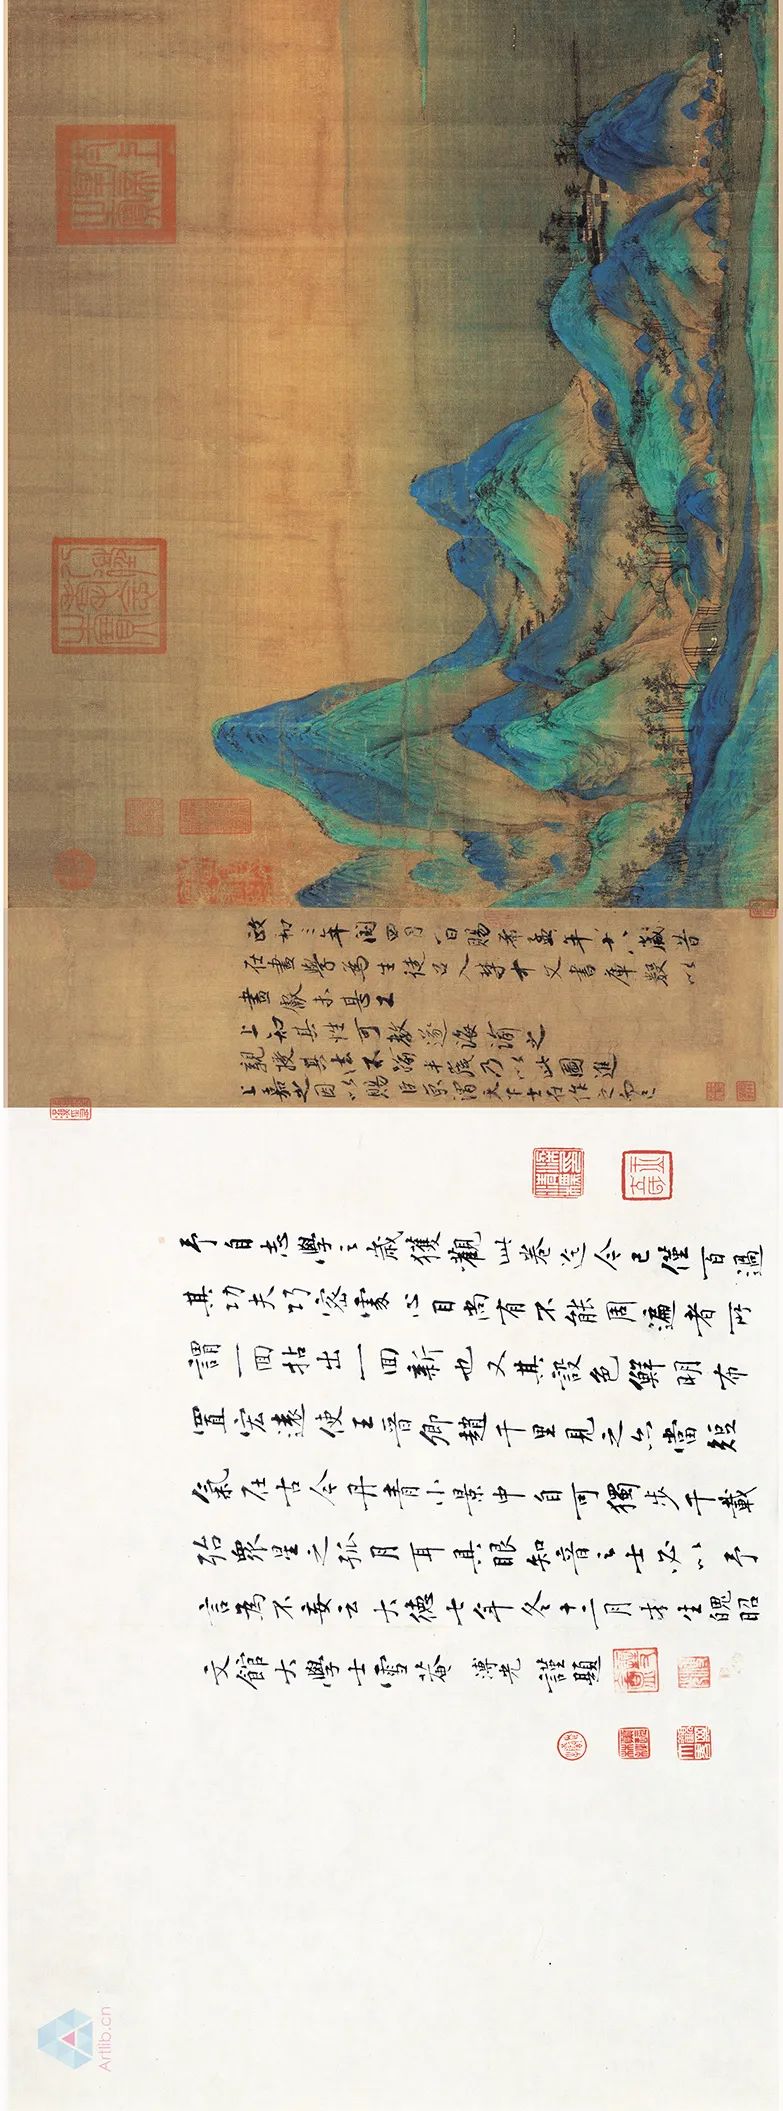 政和三年閏四月一日賜希孟年十八歲昔
在畫學為生徒召入禁中文書庫數以
畫獻未甚工
上知其性可教遂誨諭之
親授其法不踰半歲乃以此圖進
上嘉之因以賜臣京謂天下士在作之而已
予自志學之歲獲觀此卷迄今已僅百過
其功夫巧密處心目尚有不能周遍者所
謂一回拈出一回新也又其設色鮮明布
置宏遠使王晉卿趙千里見之亦當短
氣在古今丹青小景中自可獨步千載
殆衆星之孤月耳具眼知音之士必以予
言為不妄云大德七年冬十二月才生魄昭
文館大學士雪菴溥光謹題
Artlib.cn